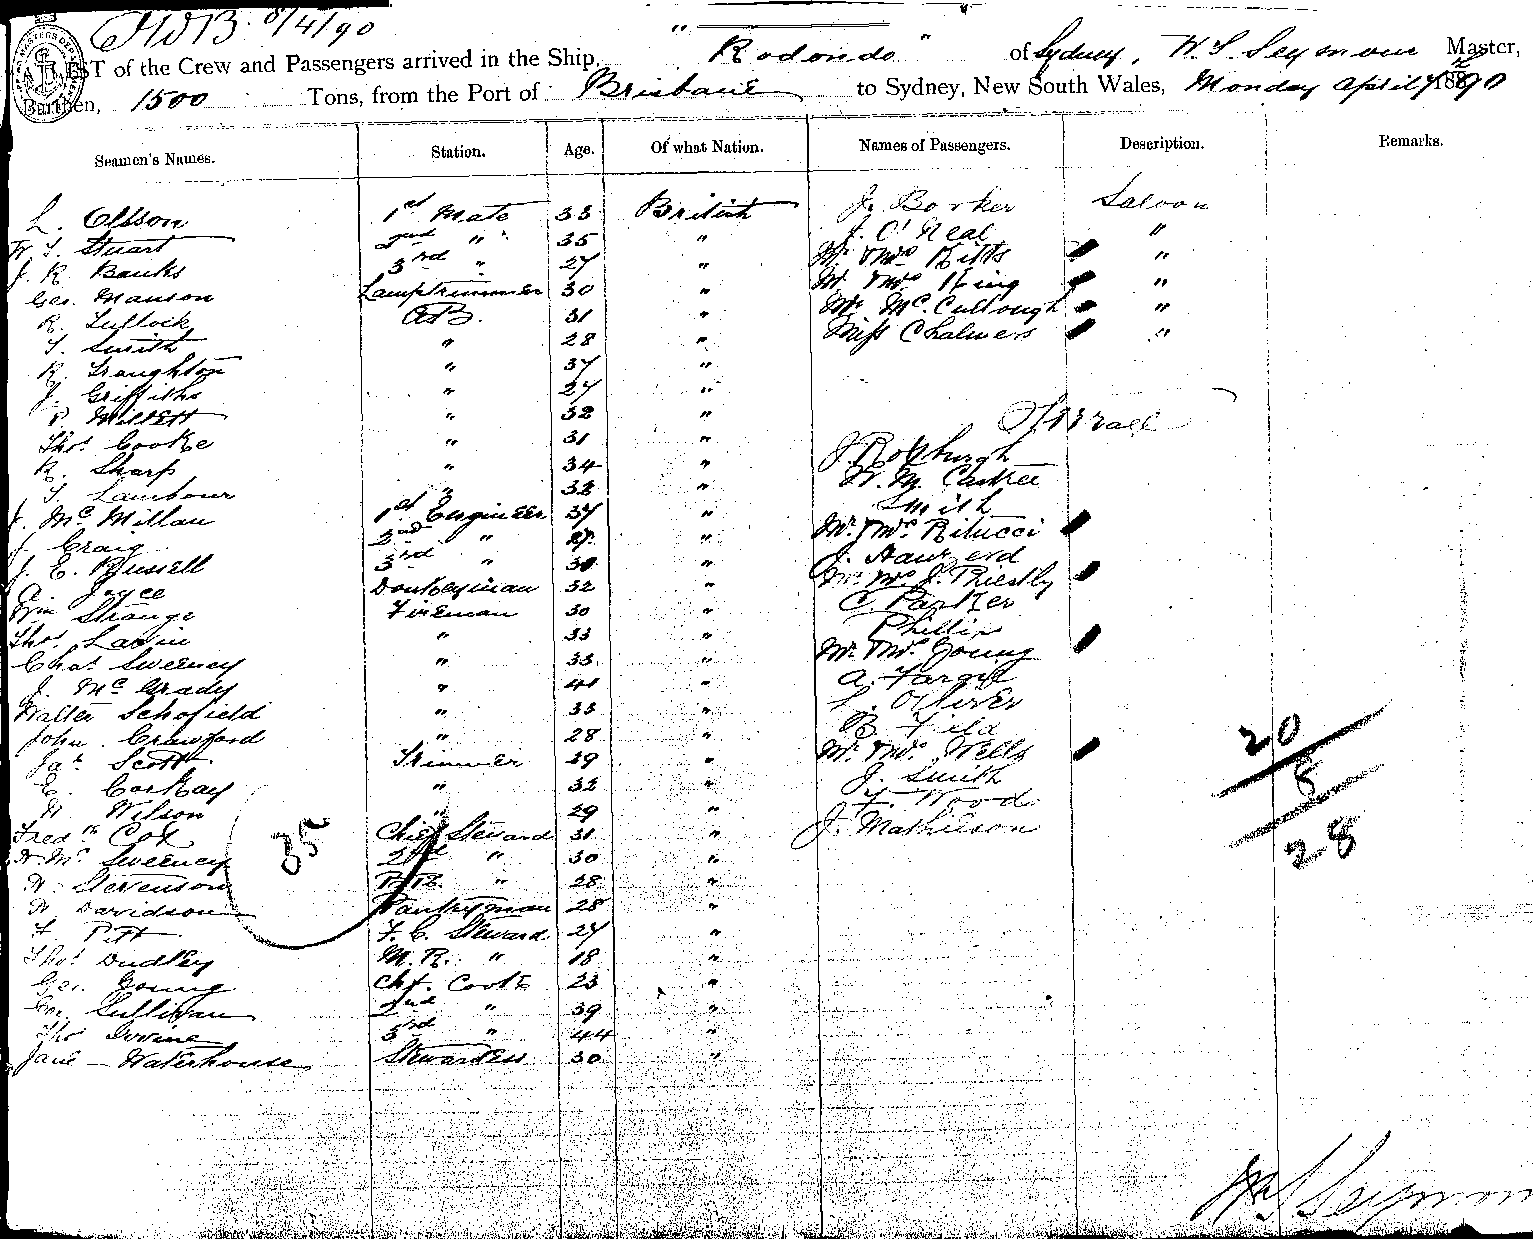 HWB 8/4/90
LIST of the Crew and Passengers arrived in the Ship, "Rodondo" of Sydney, W. S. Seymour Master,
Burthen, 1500 Tons, from the Port of Brisbane to Sydney, New South Wales, Monday April 7th 1890
Seamen's Names. Station. Age. Of what Nation. Names of Passengers. Description. Remarks.
L. Olsson 1st Mate 33 British J. Barker Saloon
W. T. Stuart 2nd " 35 " J. O'Neal "
J. R. Banks 3rd " 27 " Mr & Mrs Kitts "
Geo. Manson Lamptrimmer 30 " Mr & Mrs King "
R. Tullock A.B. 31 " Mr McCullough "
T. Smith " 28 " Miss Chalmers "
R. Troughton " 37 "
J. Griffiths " 27 "
P. Millett " 32 "
Thos Cooke " 31 "
R. Sharp " 34 " J. Roxburgh
T. Lambour " 32 " W. M.
J. McMillan 1st Engineer 37 " Smith
J. Craig 2nd " " Mr & Mrs Ritucci
J. E. Russell 3rd " 30 " J.
A. Joyce Donkeyman 32 " Mr & Mrs J. Priestly
Wm Strange Fireman 30 " C. Parker
Thos Lavin " 33 " Phillip
Chas Sweeney " 33 " Mr & Mrs Young
J. McGrady " 41 " A. Fargie
Walter Schofield " 33 " L. Oliver
John Crawford " 28 " B. Field
Jas Scott Trimmer 39 " Mr & Mrs Wells
E. Corkay " 32 " J. Smith
W. Wilson " 29 " F. Wood
Fredk Cox Chief Steward 31 " J. Mathieson
H. McSweeney 2nd " 30 "
W. Stevenson " 28 "
W. Davidson Pantryman 28 "
F. Pitt F. C. Steward 27 "
Thos Dudley M. R. " 18 "
Geo. Young Chf. Cook 23 "
Sullivan 2nd " 39 "
Thos Irvine 3rd " 44 "
Jane Waterhouse Stewardess 30 "
35
20
8
28
W. S. Seymour